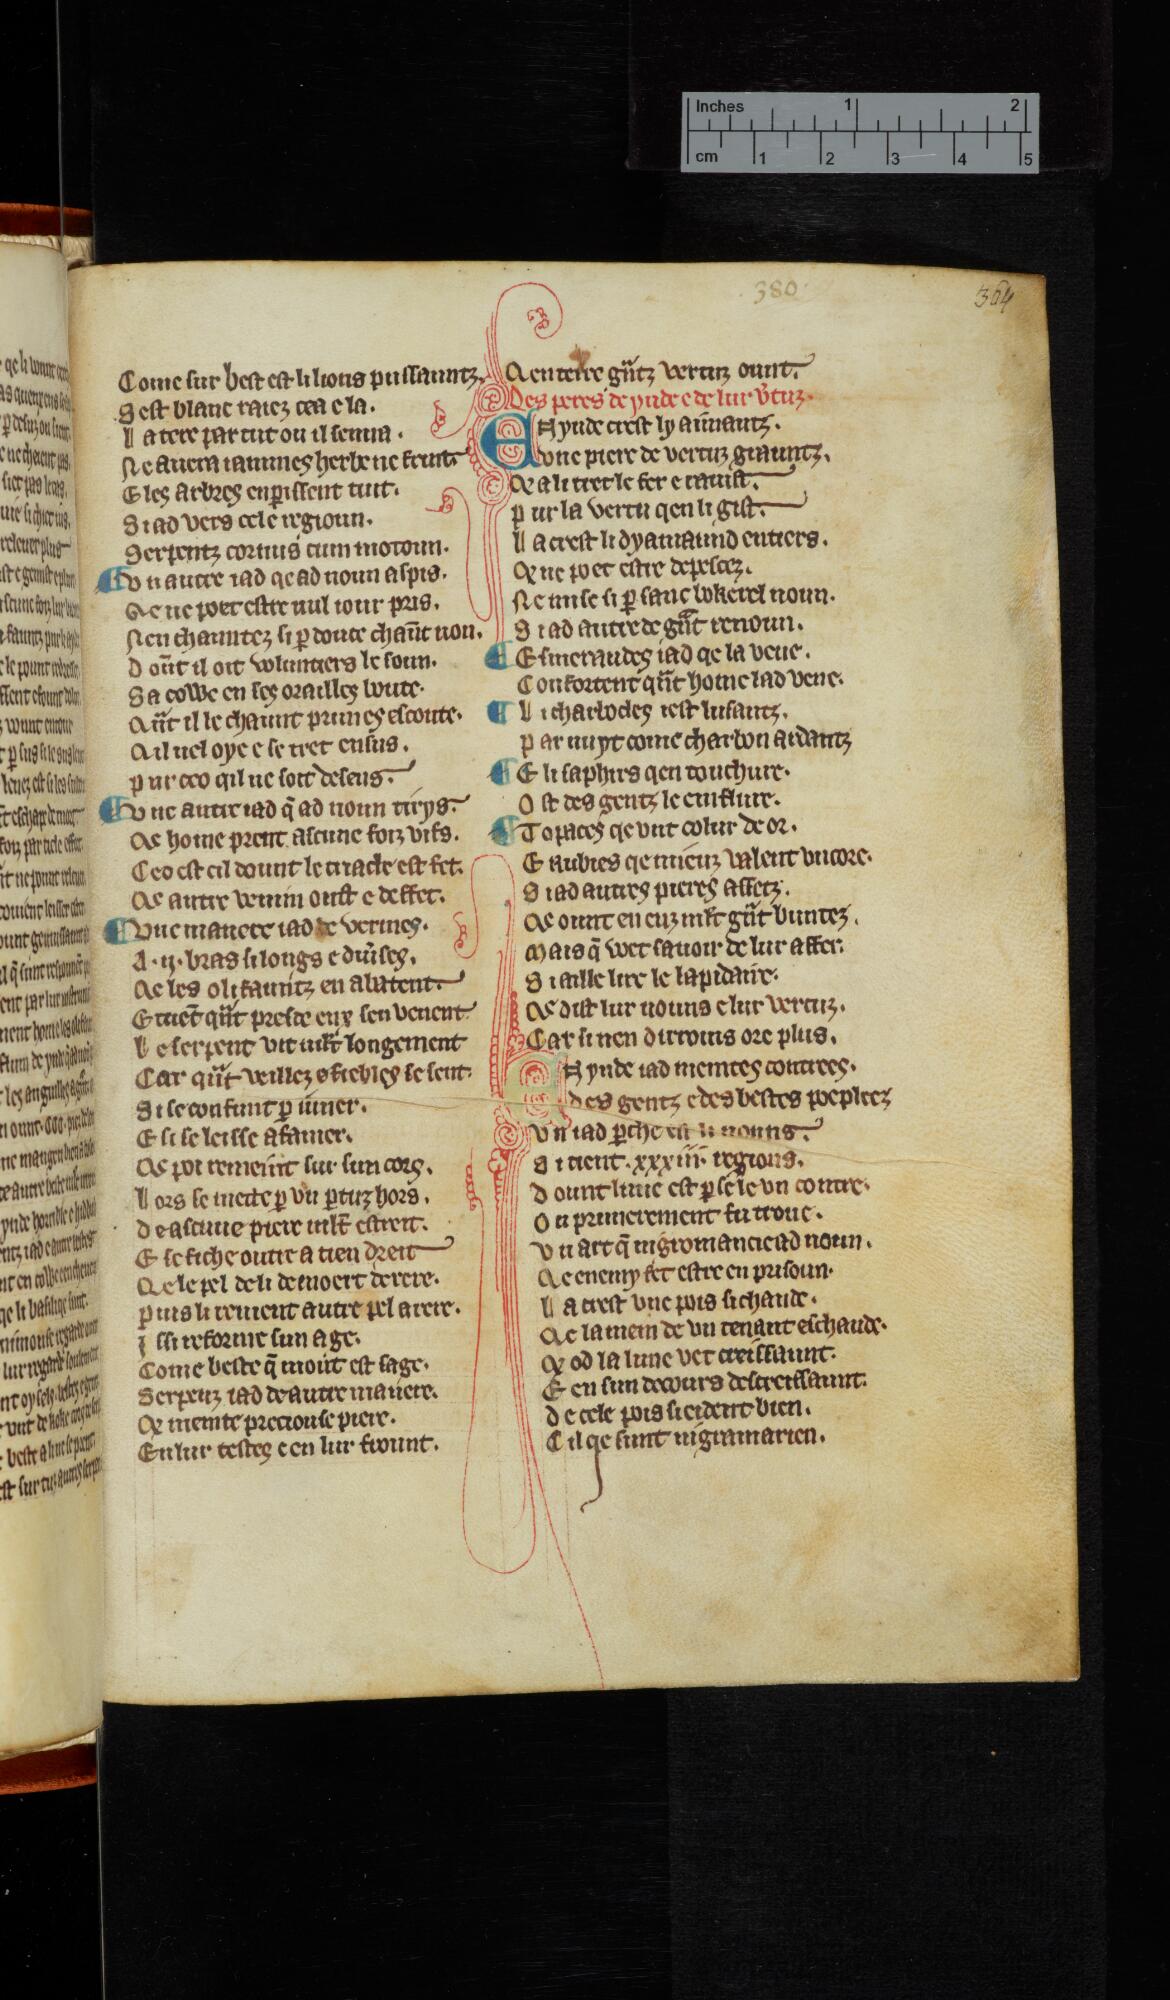 Inches 1 2
cm 1 2 3 4 5
380
364
Come sur best est li lions pussauntz.
S est blanc raiez cea e la.
La tere par tut ou il semna.
Ne auera iammes herbe ne frut
E les arbres enꝑissent tuit.
Si ad vers cele regioun.
Serpentz cornus cum motoun.
Vn autre iad qe ad noun aspis.
Qe ne poet estre nul iour pris.
Nen chauntez si ꝑ doute chaūt non.
Doūt il oit volunters le soun.
Sa cowe en ses orailles boute.
Qūt il le chaunt primes escoute.
Qil nel oye e se tret ensus.
Pur ceo qil ne soit deseus.
Vne autre iad q̄ ad noun tirys.
Qe home prent ascune foiz vifs.
Ceo est cil dount le triacle est fet.
Qe autre venim oust e deffet.
Vne manere iad de vermes.
A .ij. bras si longs e diũses.
Qe les olifauntz en abatent.
E tuēt qūt presde eux sen venent
Le serpent vit mlt longement
Car qūt veillez e fiebles se sent.
Si se confunt ꝑ iuner.
E si se leisse afamer.
Qe poi remeint sur sun cors.
Lors se mette ꝑ vn ꝑtuz hors.
De ascune piere mlt estreit.
E se fiche outre a tien dreit
Qe le pel de li demoert derere.
Puis li reuient autre pel arere.
Issi reforme sun age.
Come beste q̄ mout est sage.
Serpenz iad de autre manere.
Qe meinte preciouse piere.
En lur testes e en lur frount.
Qen terre gūtz vertuz ount.
Des peres de ynde e de lur v̾tuz.
En ynde crest ly aimantz.
Vne piere de vertuz grauntz.
Qe a li tret le fer e rauist.
Pur la vertu qen li gist.
La crest li dyamaund entiers.
Qe ne poet estre depescez.
Ne mise si ꝑ sanc bokerel noun.
Si ad autre de gūt renoun.
Esmeraudes iad qe la veue.
Confortent qūt home lad veue.
Li charbocles iest lusantz.
Par nuyt come charbon ardantz
E li saphirs qen touchure.
Ost des gentz le emflure.
Topaces qe vnt colur de or.
E rubies qe mieuz valent vncore.
Si ad autres pieres assetz.
Qe ount en euz mlt gūt buntez.
Mais q̄ wet sauoir de lur affer.
Si aille lire le lapidaire.
Qe dist lur nouns e lur vertuz.
Car si nen dirroins ore plus.
En ynde iad meintes contrees.
Des gentz e des bestes poeplees
Vn iad ꝑche est li nouns.
Si tient .xxxiiii. regions.
Dount lune est ꝑ se le vn contre.
Ou primerement fu troue.
Vn art q̄ nigromancie ad noun.
Qe enemy fet estre en prisoun.
La crest vne pois si chaude.
Qe la mein de vn tenant eschaude.
Qe od la lune vet creissaunt.
E en sun decours descreissaunt.
De cele pois si eident bien.
Cil qe sunt nigramarien.